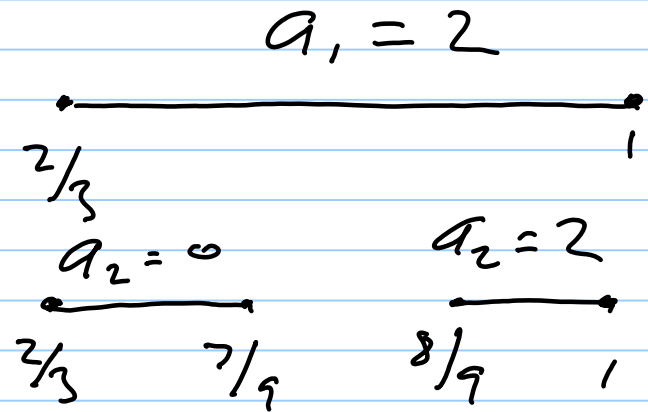 a₁ = 2
2/3 1
a₂ = 0 a₂ = 2
2/3 7/9 8/9 1